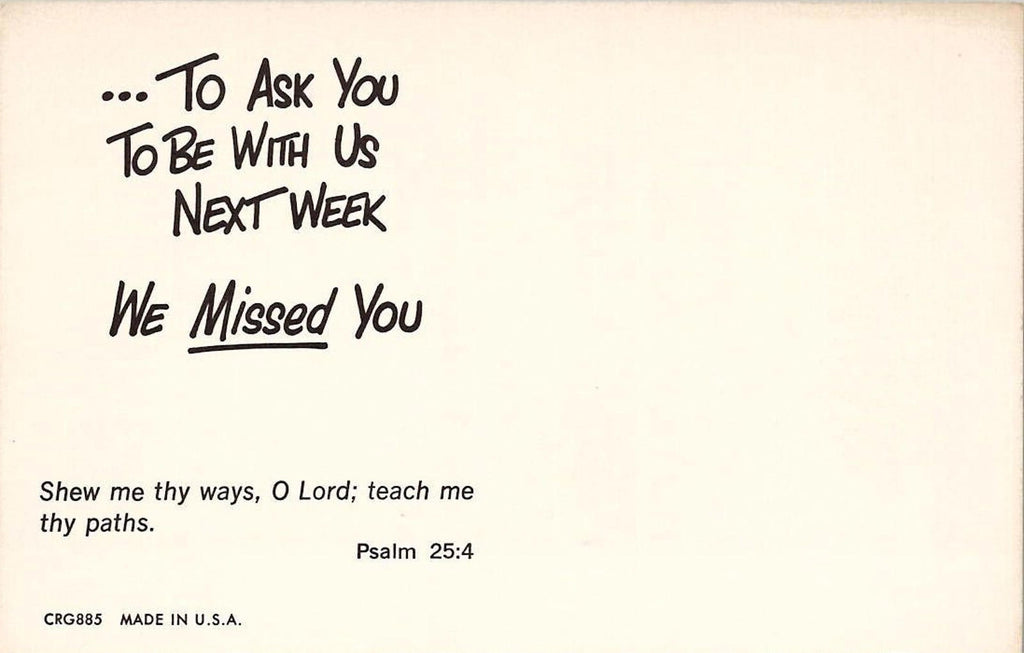 ...To Ask You
To Be With Us
Next Week
We Missed You
Shew me thy ways, O Lord; teach me
thy paths.
Psalm 25:4
CRG885 MADE IN U.S.A.